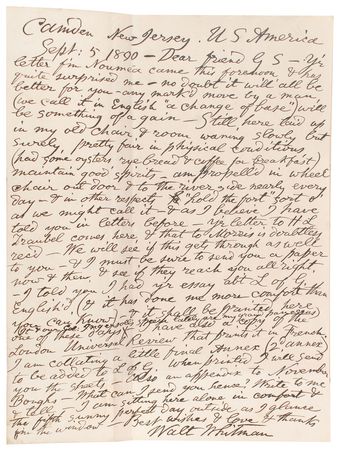 Camden New Jersey. U S America
Sept: 5 1890 - Dear friend G S - Yr
letter f'm Noumea came this forenoon & has
quite surprised me - no doubt it will all be
better for you - any mark'd move by a man
(we call it in English "a change of base") will
be something of a gain - Still here laid up
in my old chair & room waning slowly but
surely, pretty fair in physical conditions
(had some oysters rye bread & coffee for breakfast)
maintain good spirits - am propell'd in wheel
chair out door & to the river side nearly every
day - & in other respects "hold the fort" sort o'
as we might call it - & as I believe I have
told you in letters before - Yr letter to H L
Traubel comes here & that to Morris is doubtless
rec'd - We will see if this gets through as well
to you - & I must be sure to send you a paper
now & then & see if they reach you all right.
I told you I had yr essay ab't L of G.
English'd (& it has done me more comfort than
you can know) - & it shall be printed here
one of these days - I have also a copy of the
London Universal Review that prints it in French.
I am collating a little final Annex 2d annex
to be added to L of G. When printed I will send
you the sheets - Also an appendix to November
Boughs - What can I send you hence? Write to me
& tell - I am sitting here alone in comfort &
the fifth sunny perfect day outside as I glance
f'm the window - Best wishes & love & thanks
Walt Whitman